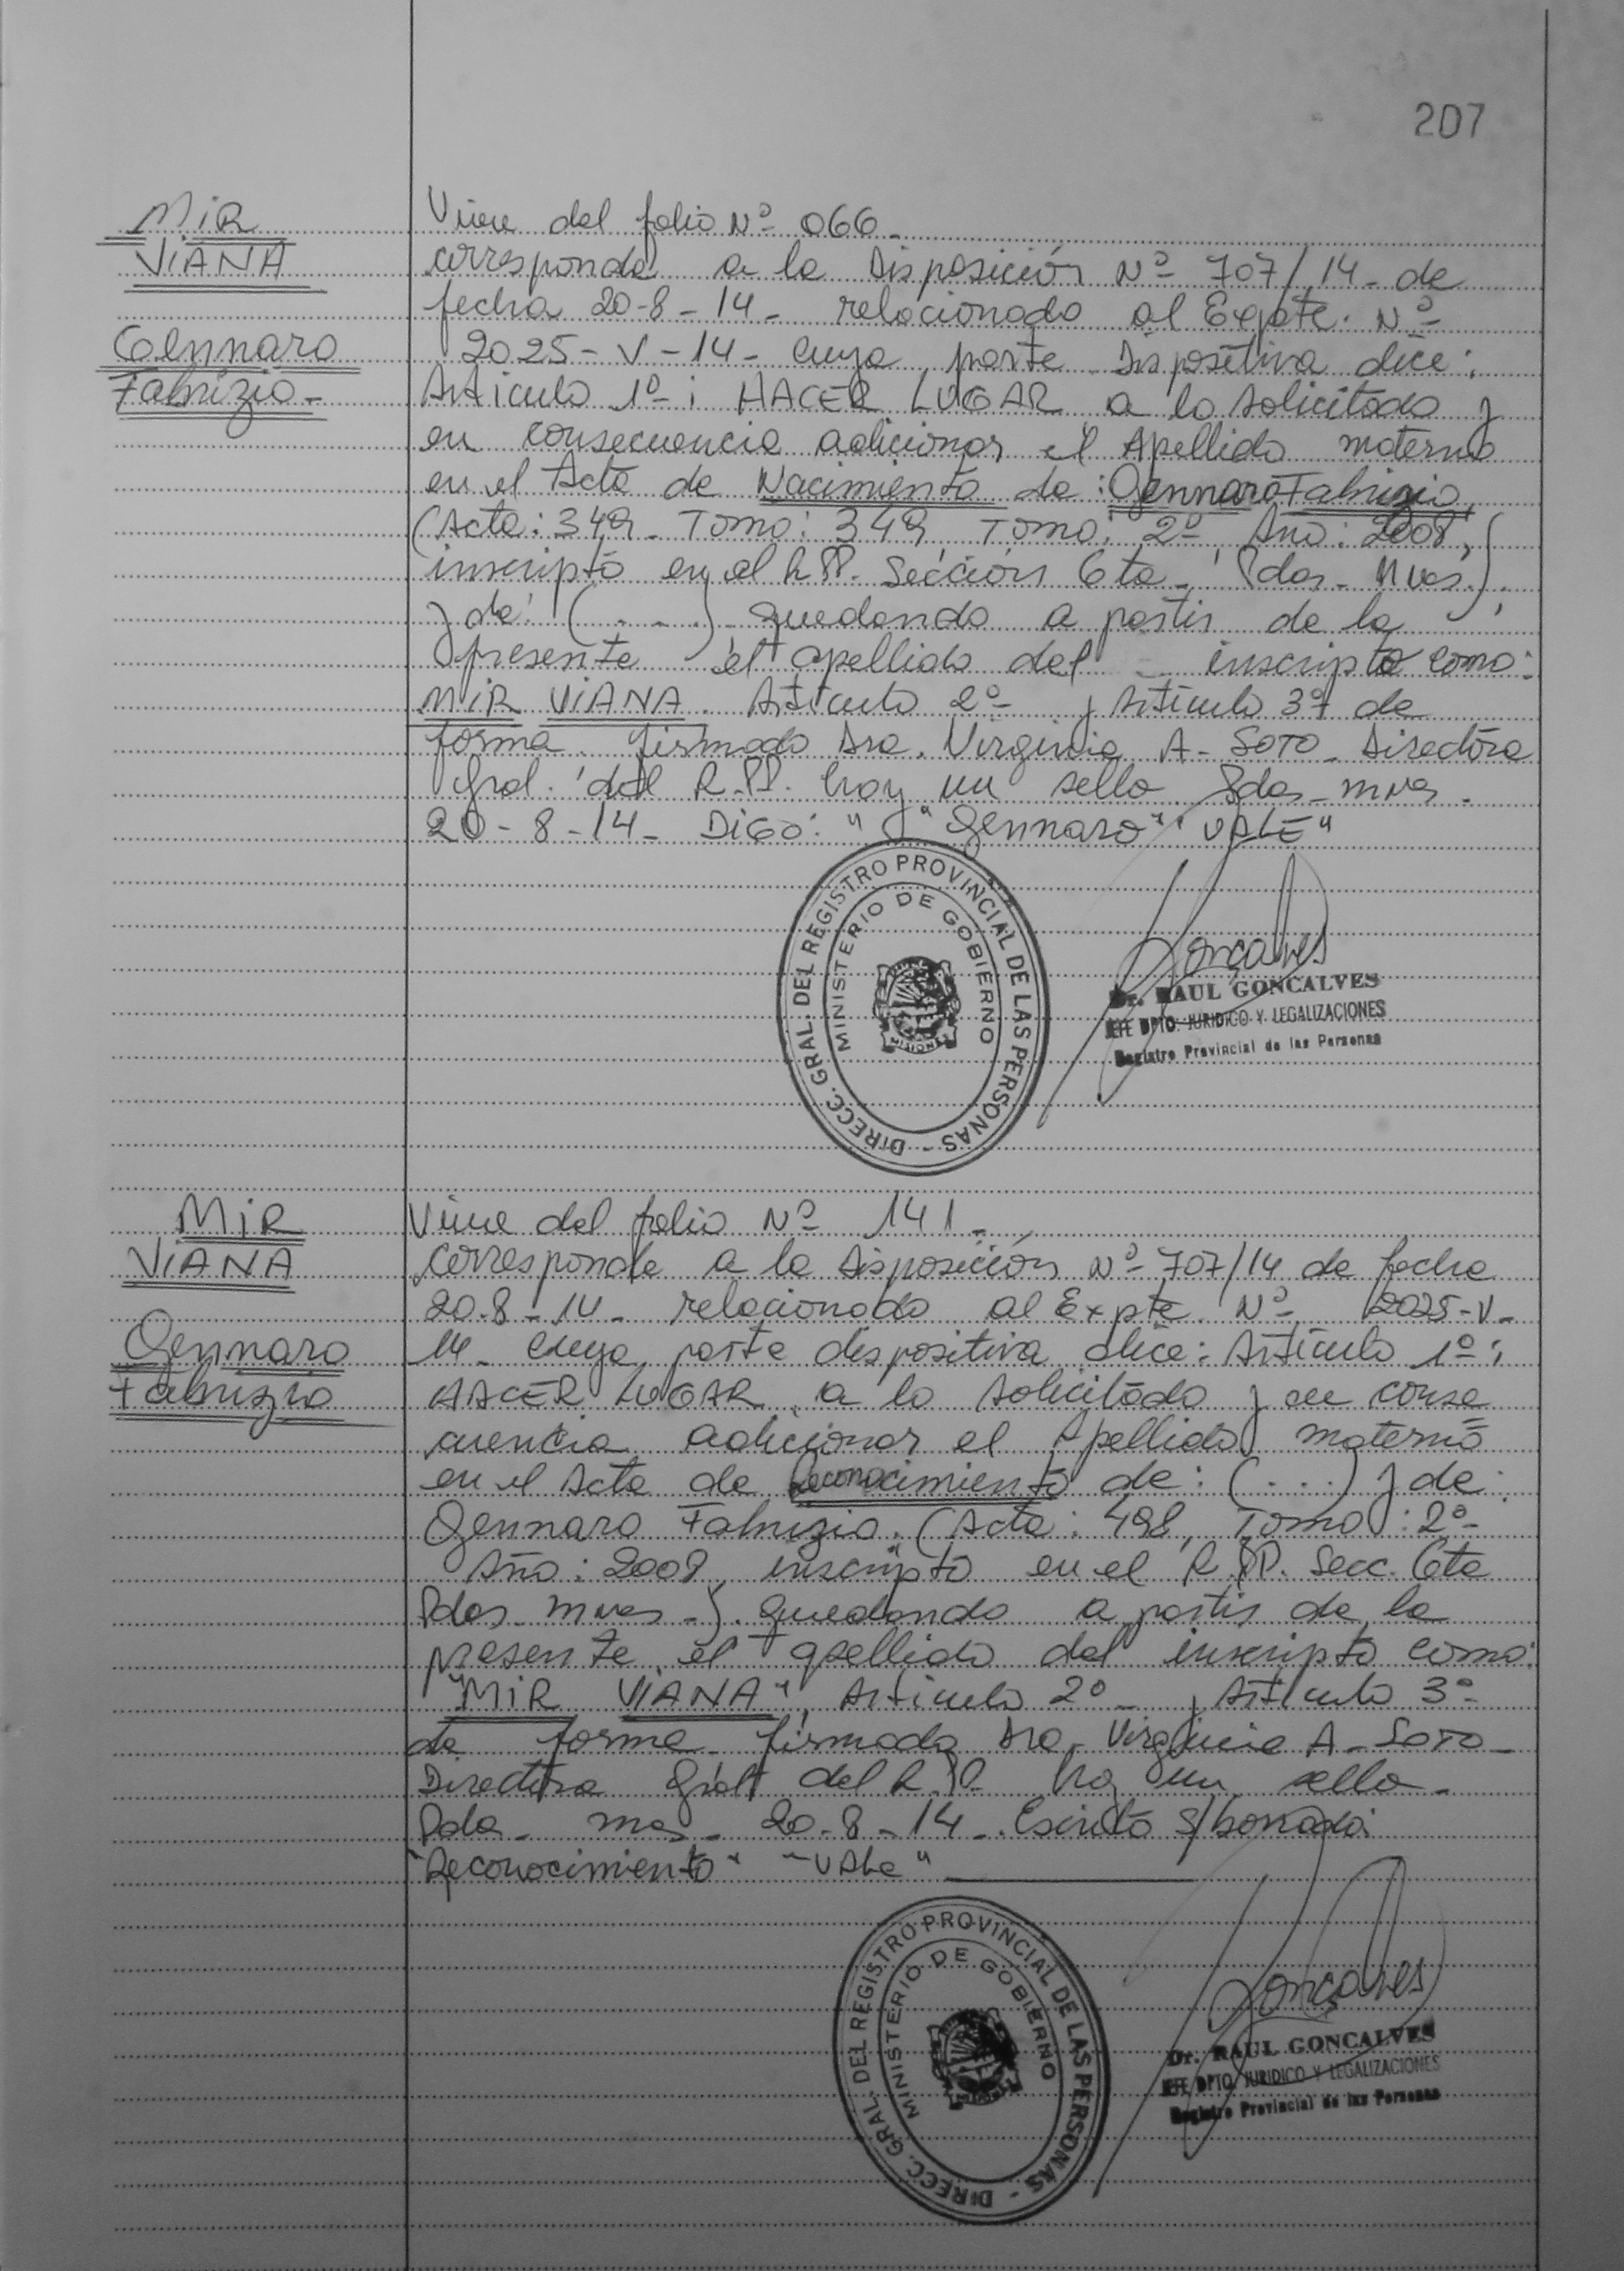 207
MiR
VIANA
Gennaro
Fabrizio -
Viene del folio Nº 066 -
corresponde a la Disposición Nº 707/14 - de
fecha 20-8-14 - relacionado al Expte. Nº
2025 - V - 14 - cuya parte Dispositiva dice:
Articulo 1º: HACER LUGAR a lo solicitado y
en consecuencia adicionar el Apellido materno
en el Acta de Nacimiento de: Gennaro Fabrizio
(Acta: 349 - Tomo: 349, Tomo: 2º, Año: 2008,
inscripto en el R.PP. Sección 6ta - Pdas - Mnes.)
y de: (. . .) quedando a partir de la
presente el apellido del inscripto como:
MiR ViANA. Articulo 2º y Artículo 3º de
forma. firmado Dra. Virginia A - SOTO - Directora
Gral. del R.PP. hay un sello Pdas - mnes -
20 - 8 - 14 - DiGO: " "Gennaro" "VALE"
DIRECC. GRAL. DEL REGISTRO PROVINCIAL DE LAS PERSONAS -
MINISTERIO DE GOBIERNO
MISIONES
Gonçalves
Dr. RAUL GONCALVES
JEFE DPTO. JURIDICO Y LEGALIZACIONES
Registro Provincial de las Personas
MiR
ViANA
Gennaro
Fabrizio
Viene del folio Nº 141 -
Corresponde a la Disposición Nº 707/14 de fecha
20-8-14 - relacionado al Expte. Nº 2025-V-
14 - cuya parte dispositiva dice: Artículo 1º:
HACER LUGAR a lo solicitado y en conse
cuencia adicionar el Apellido materno
en el Acta de Reconocimiento de: (. . .) y de:
Gennaro Fabrizio. (Acta: 498, Tomo: 2º
Año: 2008, inscripto en el R.PP. Secc. 6ta
Pdas - mnes -). quedando a partir de la
presente el apellido del inscripto como:
"MiR ViANA", Articulo 2º - y Artículo 3º
de forma - firmado Dra - Virginia A - SOTO -
Directora Gral del R.PP. hay un sello -
Pdas - mnes - 20-8-14 -. Escrito s/borrado:
"Reconocimiento" "VALE"
DIRECC. GRAL. DEL REGISTRO PROVINCIAL DE LAS PERSONAS -
MINISTERIO DE GOBIERNO
Gonçalves
Dr. RAUL GONCALVES
JEFE DPTO. JURIDICO Y LEGALIZACIONES
Registro Provincial de las Personas